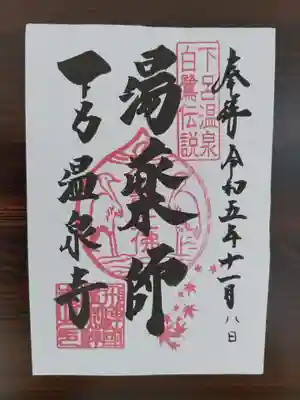 奉拝 令和五年十一月八日
下呂温泉
白鷺伝説
湯薬師
下呂温泉寺